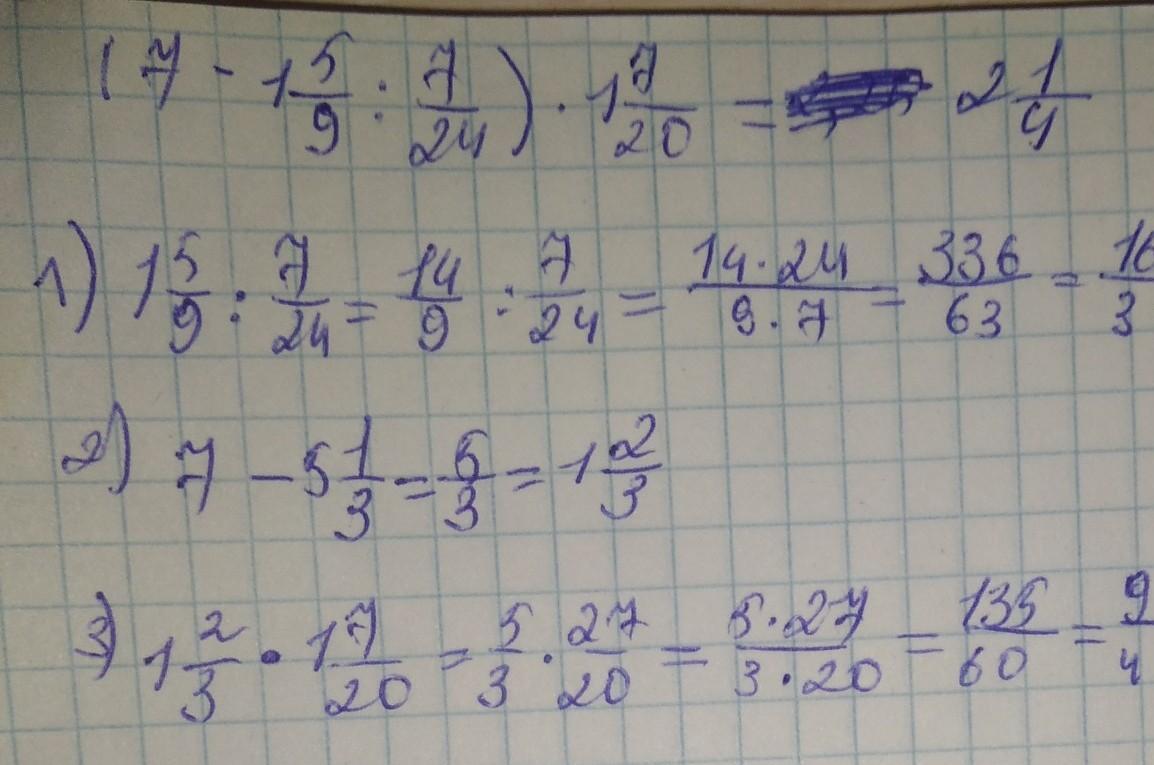 (7 - 1 5/9 : 7/24) · 1 7/20 = 2 1/4
1) 1 5/9 : 7/24 = 14/9 : 7/24 = 14·24/9·7 = 336/63 = 16/3
2) 7 - 5 1/3 = 5/3 = 1 2/3
3) 1 2/3 · 1 7/20 = 5/3 · 27/20 = 5·27/3·20 = 135/60 = 9/4